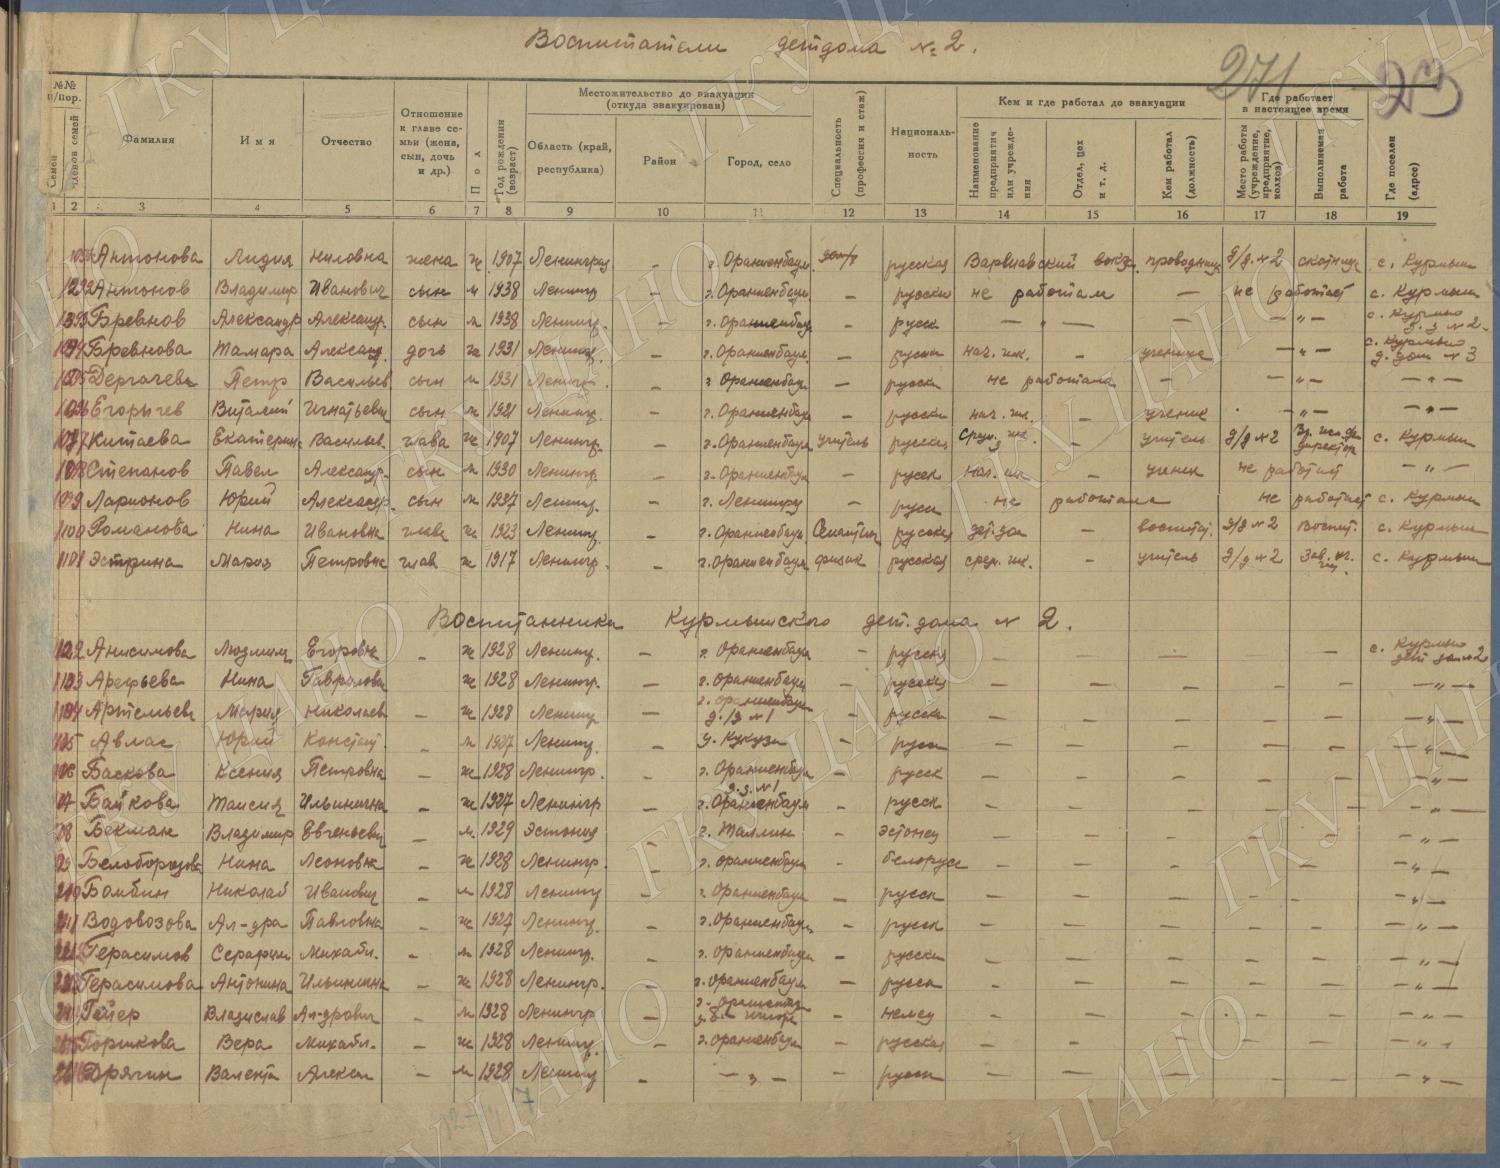 Воспитатели детдома № 2.
271
№№ п/пор.
Семей
членов семей
Фамилия
Имя
Отчество
Отношение к главе семьи (жена, сын, дочь и др.)
Пол
Год рождения (возраст)
Местожительство до эвакуации (откуда эвакуирован)
Область (край, республика)
Район
Город, село
Специальность (профессия и стаж)
Националь-ность
Кем и где работал до эвакуации
Наименование предприятия или учреждения
Отдел, цех и т. д.
Кем работал (должность)
Где работает в настоящее время
Место работы (учреждение, предприятие, колхоз)
Выполняемая работа
Где поселен (адрес)
1 2 3 4 5 6 7 8 9 10 11 12 13 14 15 16 17 18 19
Антонова Лидия Ниловна жена ж 1907 Ленинград - г. Ораниенбаум русская Варшавский вокз. проводница д/д. № 2 с. Курмыш
Антонов Владимир Иванович сын м 1938 Ленингр - г. Ораниенбаум - русски не работал - не работает с. Курмыш
Бревнов Александр Александр. сын м 1938 Ленингр. - г. Ораниенбаум - русск - " - - - " - с. Курмыш д. д № 2
Бревнова Тамара Александ. дочь ж 1931 Ленингр. - г. Ораниенбаум - русски нач. шк. - ученица - " - с. Курмыш д. дом № 3
Дергачев Петр Васильев сын м 1931 Ленингр. г. Ораниенбаум - русски не работала - - - " - - " -
Егорычев Виталий Игнатьевич сын м 1921 Ленингр. - г. Ораниенбаум - русски нач. шк. - ученик - " - - " -
1097 Китаева Екатерина Васильев. глава ж 1907 Ленингр. - г. Ораниенбаум учитель русская средн. шк. - учитель д/д № 2 директор с. Курмыш
1098 Степанов Павел Александр. сын м 1930 Ленингр. - г. Ораниенбаум - русск нач. шк - ученик не работает - " -
1099 Ларионов Юрий Александр. сын м 1937 Ленингр. - г. Ленинград - русск не работала не работает с. Курмыш
1100 Романова Нина Ивановна глава ж 1923 Ленингр. - г. Ораниенбаум русская дет. дом - воспитат. д/д № 2 воспит. с. Курмыш
1101 Эстрина Мария Петровна глав ж 1917 Ленингр. - г. Ораниенбаум физик русская средн. шк. - учитель д/д № 2 с. Курмыш
Воспитанники Курмышского дет. дома № 2.
Анисимова Людмила Егоровн - ж 1928 Ленингр. - г. Ораниенбаум - русску - - - - - с. Курмыш дет дом № 2
1103 Арефьева Нина Гавролова ж 1928 Ленингр. - г. Ораниенбаум - русская - - - - - - " -
1104 Артемьева Мария Николаев - ж 1928 Ленингр - г. Ораниенбаум д. /д № 1 - русска - - - - - - " -
Авлас Юрий Констант. м 1927 Ленингр. - д. Кукузи - русск - - - - - - " -
Баскова Ксения Петровна - ж 1928 Ленингр. - г. Ораниенбаум - русск - - - - - - " -
Байкова Таисия Ильинична - ж 1927 Ленингр - д. д. № 1 г. Ораниенбаум - русск - - - - - - " -
Бекман Владимир Евгеньевич - м 1929 Эстония - г. Таллин - эстонец - - - - - - " -
Белобородова Нина Леоновн - ж 1928 Ленингр. - г. Ораниенбаум - белорусс - - - - - - " -
Бомбин Николай Иванович м 1928 Ленингр - г. Ораниенбаум - русск - - - - - - " -
Водовозова Ал-дра Павловна - ж 1927 Ленингр. - г. Ораниенбаум. - русск - - - - - - " -
Герасимов Серафим Михайл. - м 1928 Ленингр. - г. Ораниенбаум - русски - - - - - - " -
Герасимова Антонина Ильинична - ж 1928 Ленингр. - г. Ораниенбаум - русск - - - - - - " -
Гейер Владислав Ал-дрович - м 1928 Ленингр - - немец - - - - - - " -
Горшкова Вера Михайл. - ж 1928 Ленингр. - г. Ораниенбаум - русская - - - - - - " -
Дрягин Валент Алексан - м 1928 Ленингр - - " - - русск - - - - - - " -
ГКУ ЦАНО